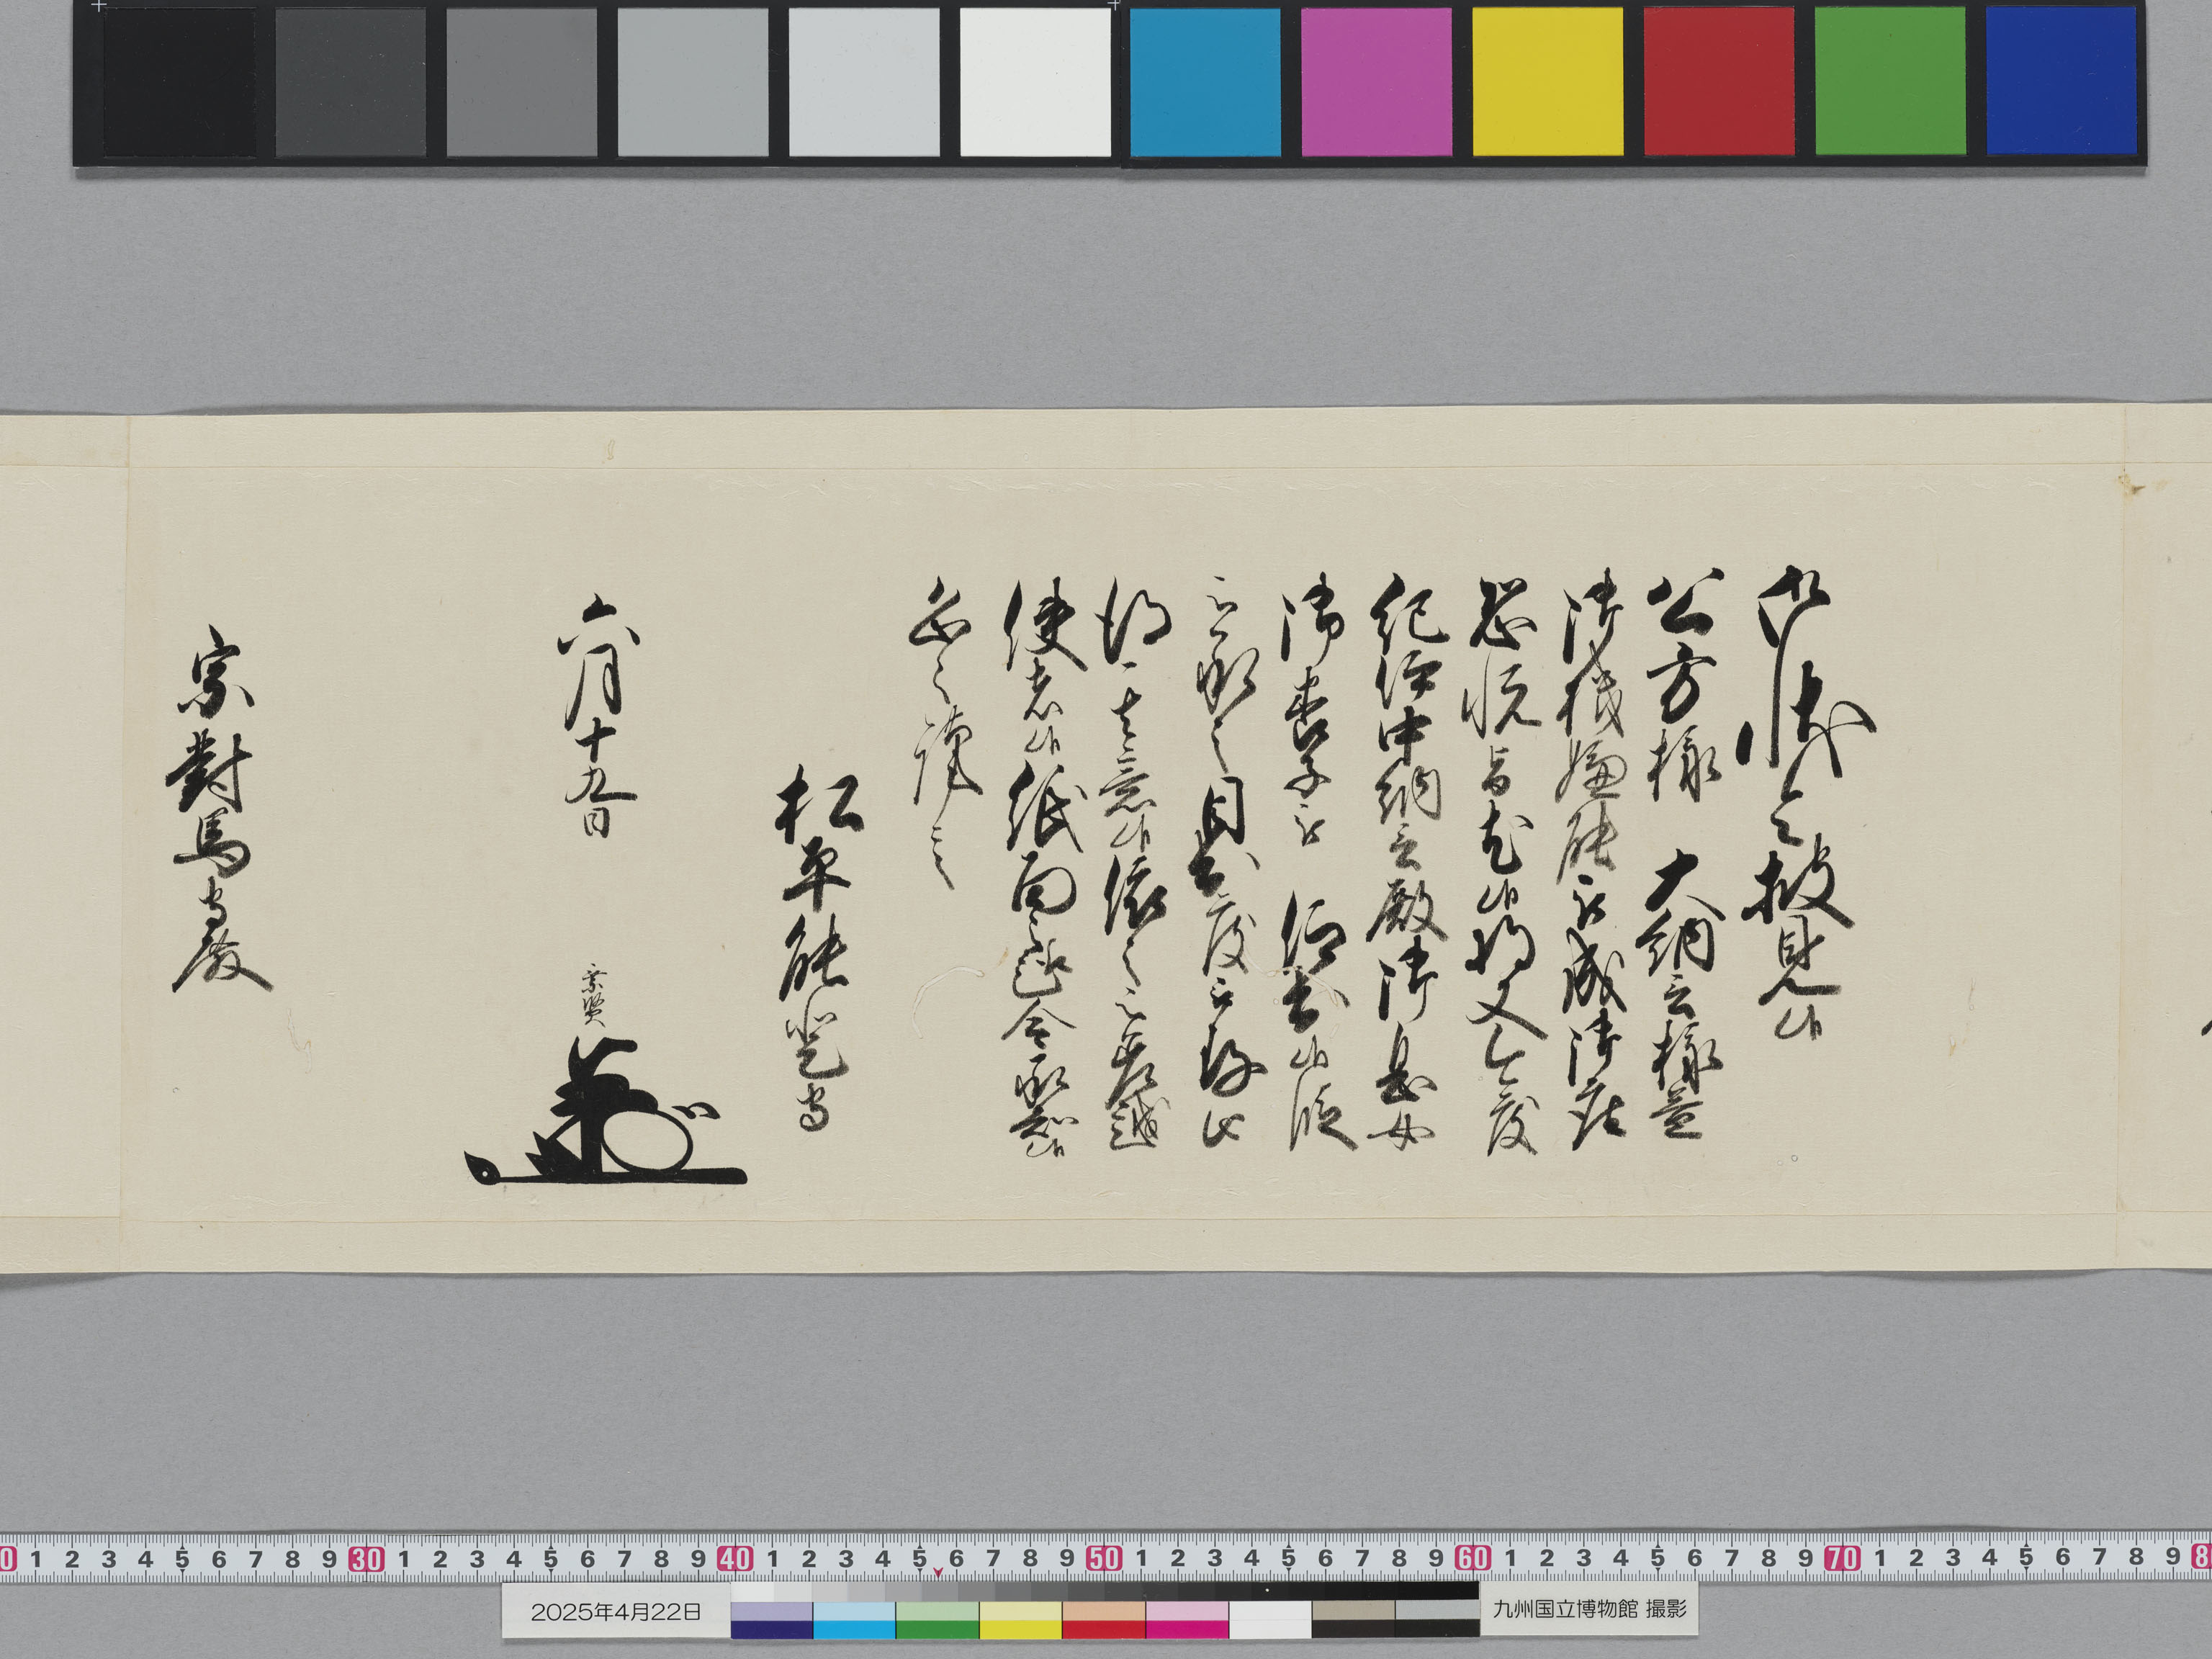 御状令披見候
公方様 大納言様益
御機嫌能被成御座
恐悦旨尤候将又今度
紀伊中納言殿御息女
御養子被 仰出候段
被承之目出度被存候
得其意候依之被差越
使者候紙面之趣令承知候
恐々謹言
松平能登守
六月十九日
乗賢
宗對馬守殿
0 1 2 3 4 5 6 7 8 9 30 1 2 3 4 5 6 7 8 9 40 1 2 3 4 5 6 7 8 9 50 1 2 3 4 5 6 7 8 9 60 1 2 3 4 5 6 7 8 9 70 1 2 3 4 5 6 7 8 9 8
2025年4月22日
九州国立博物館 撮影